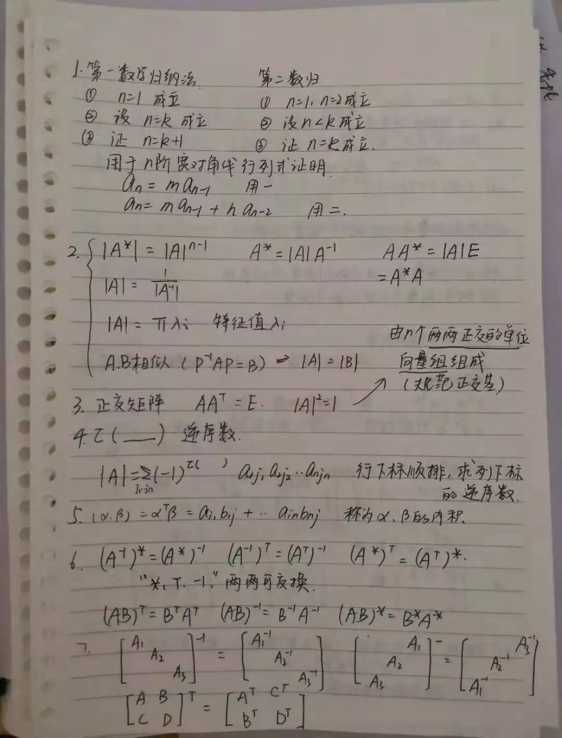 1. 第一数学归纳法 第二数归
① n=1 成立 ① n=1, n=2成立
② 设 n=k 成立 ② 设 n<k 成立
③ 证 n=k+1 ③ 证 n=k成立.
用于n阶宽对角线行列式证明.
aₙ = maₙ₋₁ 用一
aₙ = maₙ₋₁ + naₙ₋₂ 用二.
2. |A*| = |A|ⁿ⁻¹ A* = |A|A⁻¹ AA* = |A|E
|A| = 1/|A⁻¹| = A*A
|A| = πλᵢ 特征值λᵢ
A.B相似 (P⁻¹AP=B) ⇒ |A| = |B|
由n个两两正交的单位
向量组组成
(规范正交基)
3. 正交矩阵 AAᵀ = E. |A|²=1
4. τ(___) 逆序数.
|A| = Σ(-1)^τ( ) a₁j₁ a₂j₂ ... aₙjₙ 行下标顺排, 求列下标
j₁…jₙ 的逆序数.
5. (α.β) = αᵀβ = aᵢ,bᵢj + ... aᵢₙbₙj 称为α.β的内积.
6. (A⁻¹)* = (A*)⁻¹ (A⁻¹)ᵀ = (Aᵀ)⁻¹ (A*)ᵀ = (Aᵀ)*.
"*, T. -1," 两两可交换.
(AB)ᵀ = BᵀAᵀ (AB)⁻¹ = B⁻¹A⁻¹ (AB)* = B*A*
7. [A₁ A₂ A₃]⁻¹ = [A₁⁻¹ A₂⁻¹ A₃⁻¹] [A₁ A₂ A₃]⁻ = [A₃⁻¹ A₂⁻¹ A₁⁻¹]
[A B
C D]ᵀ = [Aᵀ Cᵀ
Bᵀ Dᵀ]